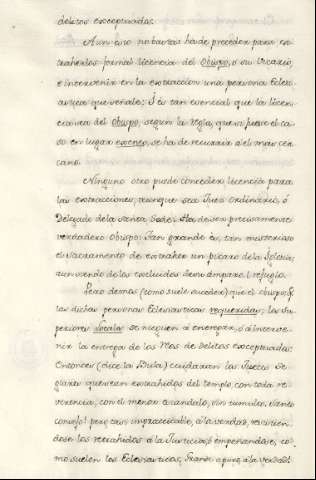 delitos exceptuados.
Aun esto no basta: ha de preceder para extraherlos formal licencia del Obispo, o su Vicario,
e intervenir en la extraccion una persona Eclesi-
astica que señale; I es tan esencial que la licen-
cia sea del Obispo, segun la regla, que si fuere el ca-
so en lugar exento, se ha de recurrir al el mas cer-
cano.
Ninguno otro puede conceder licencia para
las extracciones, aunque sea Juez Ordinario, ó
Delegado de la Santa Sede: Ha de ser precisamente
verdadero Obispo: Tan grande es, tan misterioso
el Sacramento de extraher un preso de la Iglesia,
aun siendo de los excluidos de su amparo, i refugio.
Pero demos (como suele suceder) que el obispo, ú
las dichas personas Eclesiasticas requeridas; los Su-
periores Locales se nieguen á entregar, o á interve-
nir la entrega de los Reos de Delitos exceptuados:
Entonces (dice la Bula) cuidaràn los Jueces Se-
glares que sean extrahidos del templo, con toda re-
verencia, con el menor escandalo, sin tumulto. Santo
consejo! pero casi impracticable, á la verdad, resistien-
dose los retrahidos á la Justicia, ó empeñandose, co-
mo suelen los Eclesiasticos,